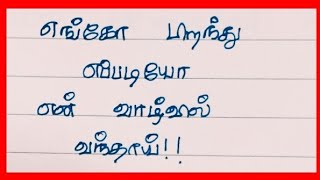 எங்கோ பறந்து
எப்படியோ
என் வாழ்வில்
வந்தாய்!!